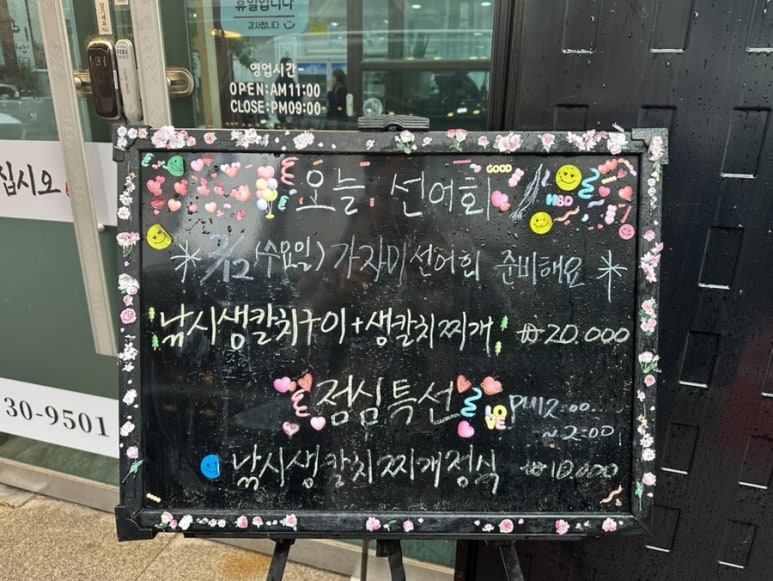 휴일입니다
감사합니다
영업시간-
OPEN:AM11:00
CLOSE:PM09:00
십시오
오늘 선어회
GOOD
HBD
*7/12(수요일) 가자미선어회 준비해요*
낚시생칼치구이+생칼치찌개 ₩20.000
점심특선
LOVE
PM12:00..
~2:00,
낚시생칼치찌개정식 ₩10.000
30-9501